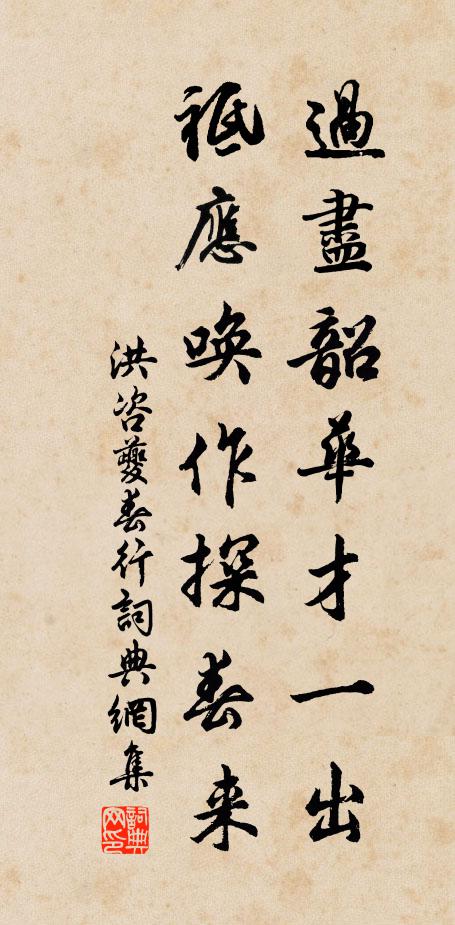 過盡韶華才一出
祗應喚作探春來
洪咨夔春行詞典網集
詞典网印